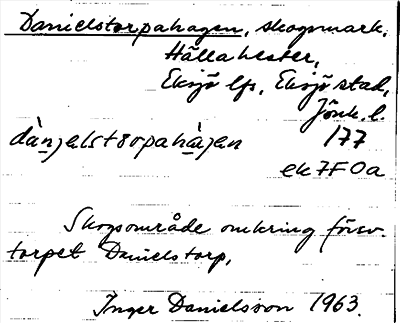 Danielstorpahagen, skogsmark,
Hällahester,
Eksjö lfs, Eksjö stad,
Jönk. l.
dànjəlstɔrpahàgən 177
ek 7F 0a
Skogsområde omkring försv.
torpet Danielstorp.
Inger Danielsson 1963.